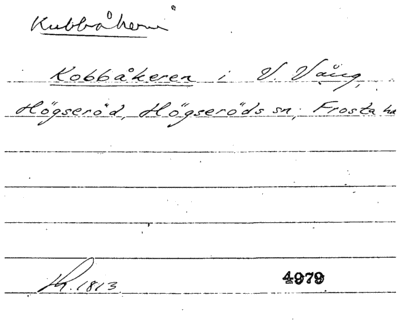 Kubbåkern
Kobbåkeren i V. Vång,
Högseröd, Högseröds sn; Frosta ha
1813
4979